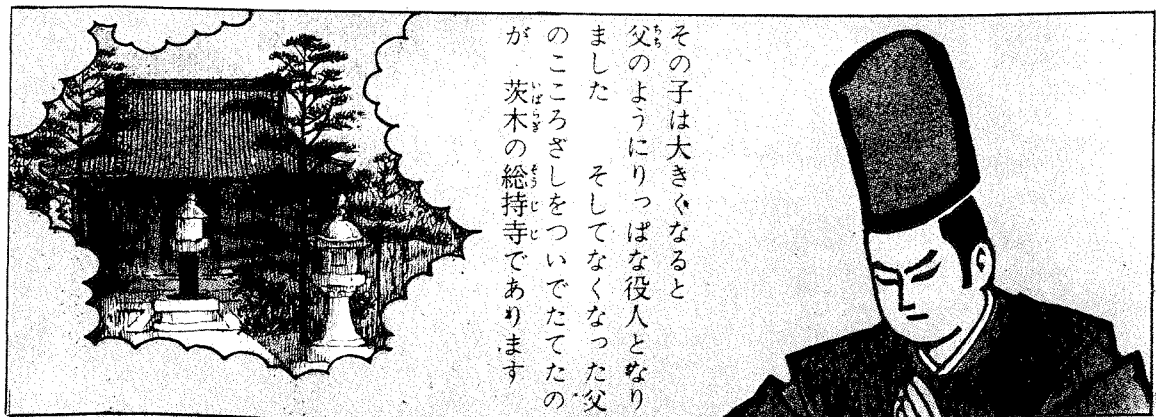 その子は大きくなると
父のようにりっぱな役人となり
ました　　そしてなくなった父
のこころざしをついでたてたの
が　茨木の総持寺であります